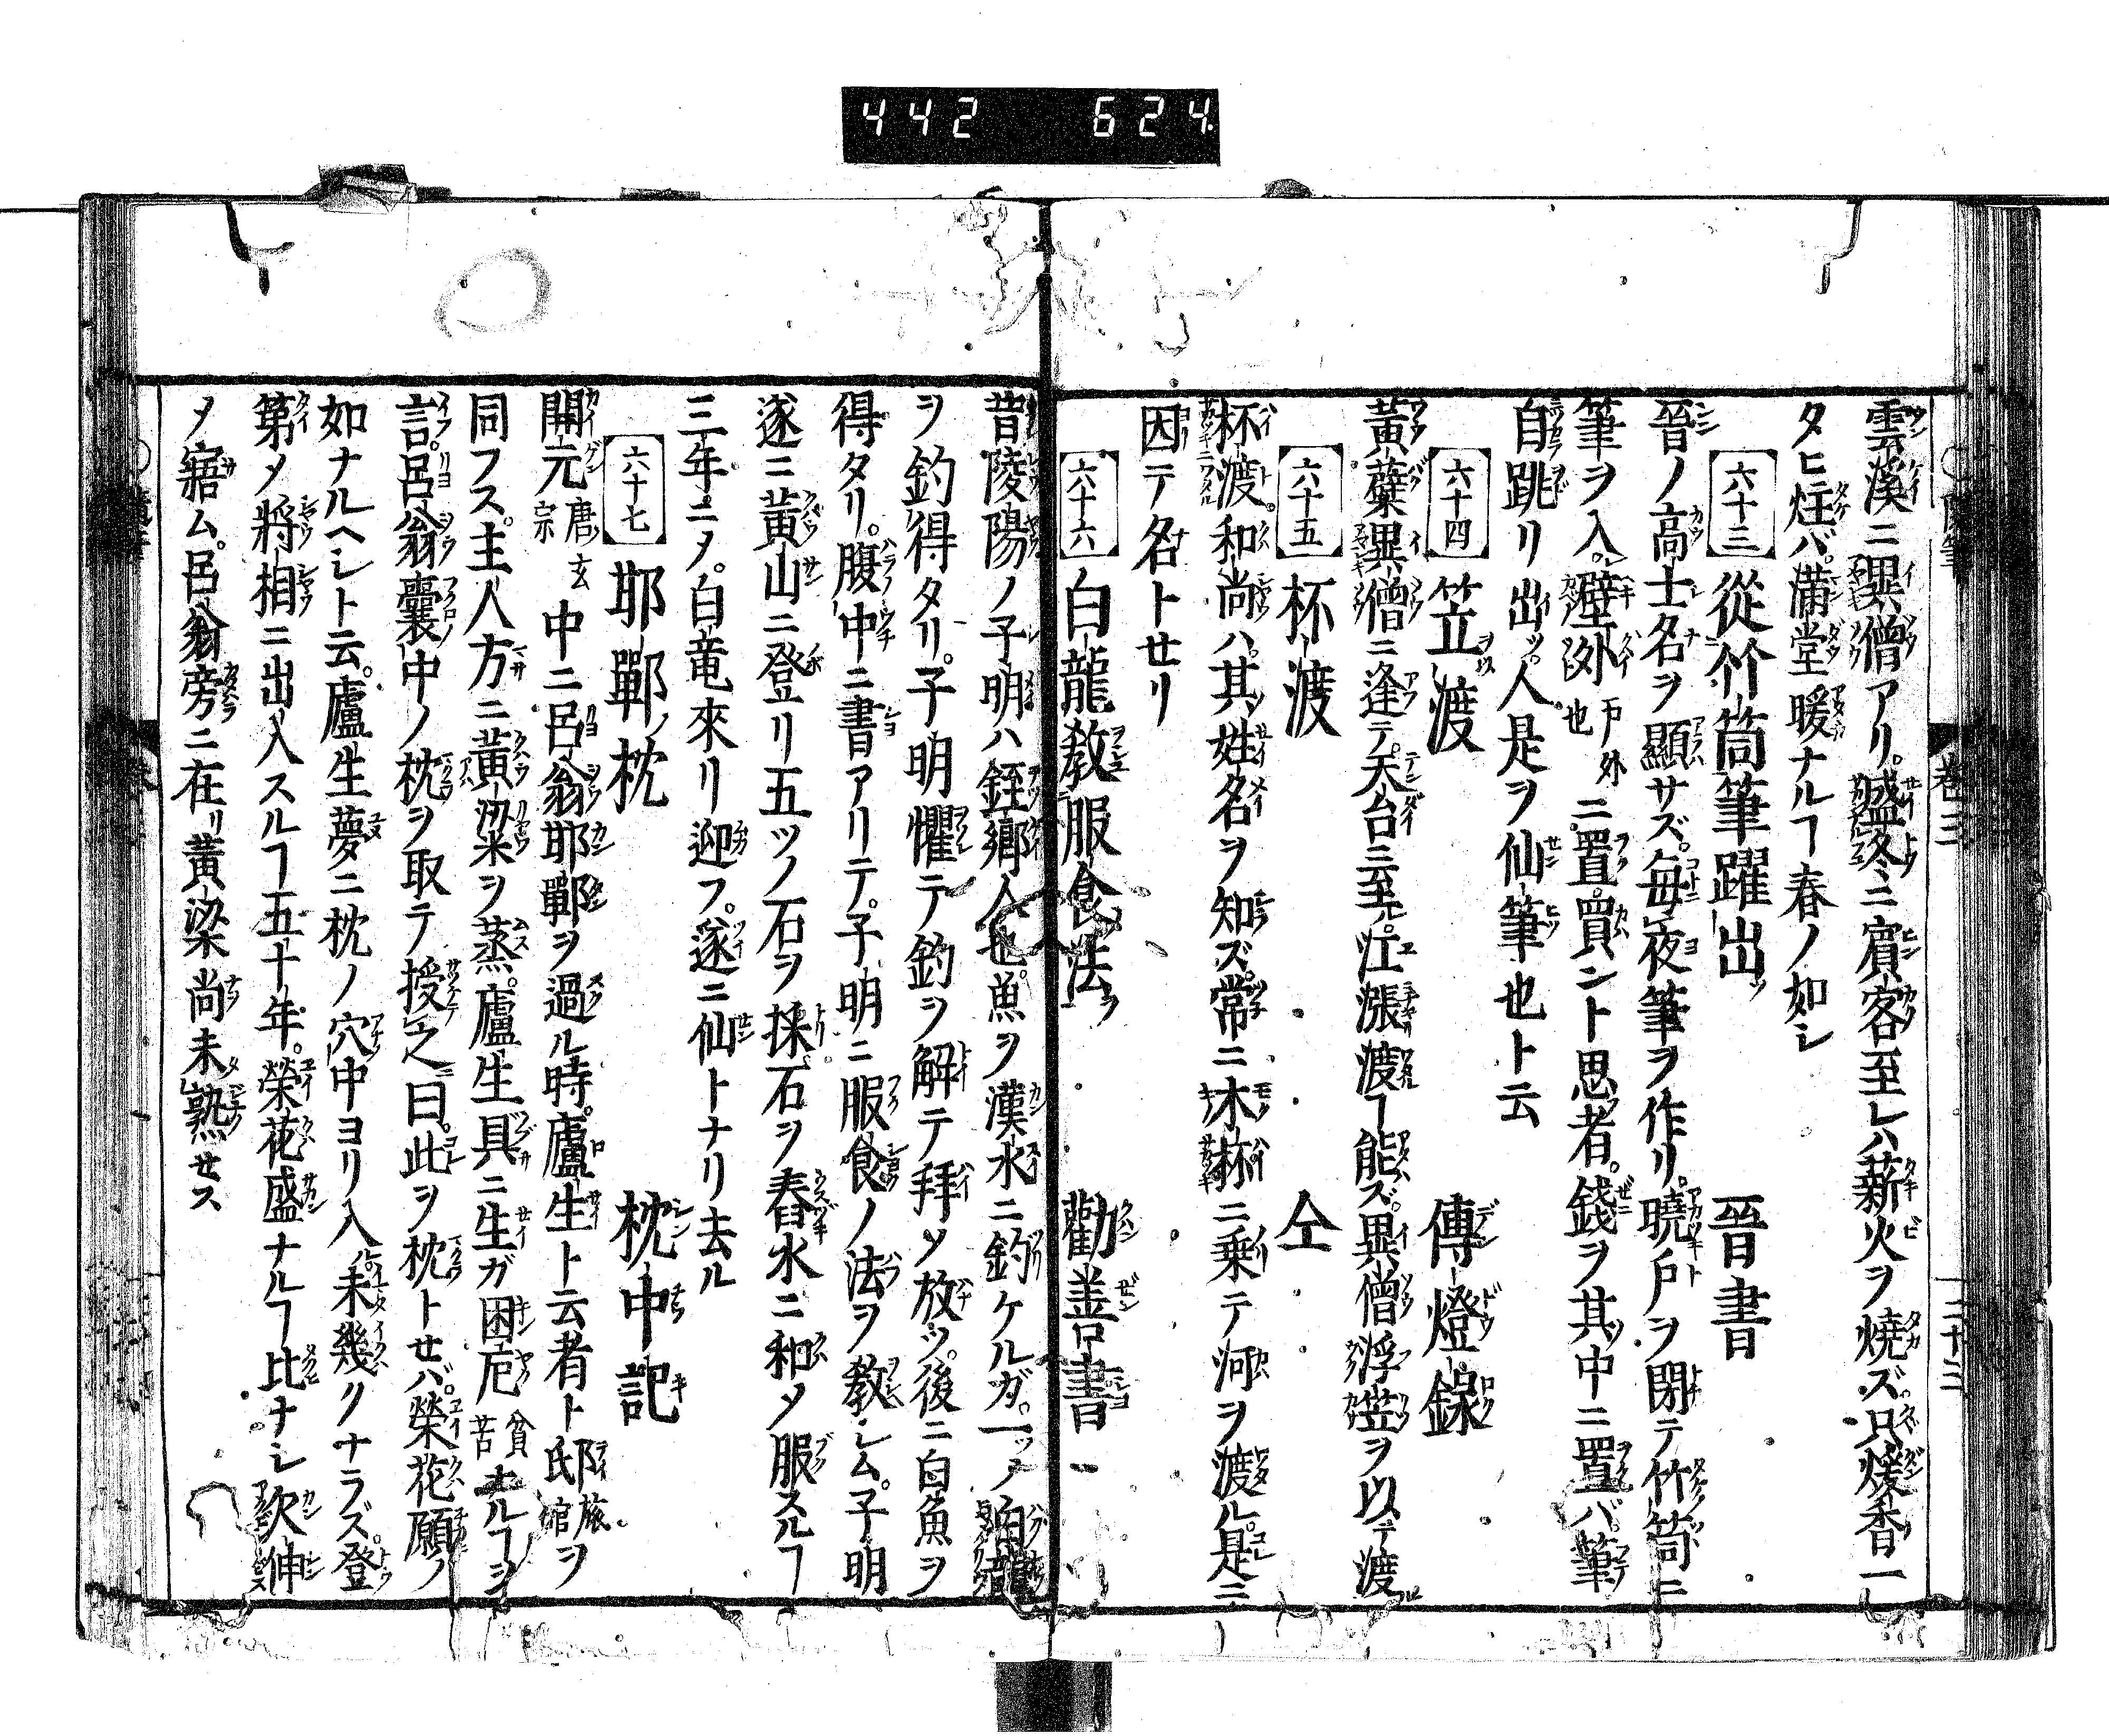 442 624
雲溪ニ異僧アリ。盛冬ニ賓客至レハ薪火ヲ燒ズ。只煖香一
タヒ炷バ。滿堂暖ナルヿ春ノ如シ
六十三 從竹筒筆躍出ツ 晉書
晉ノ高士名ヲ顯サズ。毎夜筆ヲ作リ。曉戸ヲ閉テ竹筒ニ
筆ヲ入。壁外戸外也ニ置。買ント思者。錢ヲ其中ニ置バ筆
自跳リ出ツ。人是ヲ仙筆也ト云
六十四 笠渡 傳燈録
黃蘗異僧ニ逢テ。天台ニ至ル。江漲渡ヿ能ズ。異僧浮笠ヲ以テ渡ル
六十五 杯渡 仝
杯渡和尚ハ。其ノ姓名ヲ知ズ。常ニ木杯ニ乗テ河ヲ渡ル。是ニ
因テ名トせリ
六十六 白龍教服食法ヲ 勸善書
昔陵陽ノ子明ハ銍鄉人也。魚ヲ漢水ニ釣ケルガ。一ツノ白龍
ヲ釣得タリ。子明懼テ釣ヲ解テ拜ソ放ツ。後ニ白魚ヲ
得タリ。腹中ニ書アリテ。子明ニ服食ノ法ヲ教シム。子明
遂ニ黃山ニ登リ五ツノ石ヲ採。石ヲ舂水ニ和メ服スルヿ
三年ニメ。白竜來リ迎フ。遂ニ仙トナリ去ル
六十七 耶鄲ノ枕 枕中記
開元唐玄宗中ニ呂翁耶鄲ヲ過ル時。盧生ト云者ト邸旅舘ヲ
同フス。主人方ニ黃粱ヲ蒸。盧生具ニ生ガ困厄貧苦ナルヿヲ
言。呂翁囊中ノ枕ヲ取テ授之曰。此ヲ枕トせバ。榮花願ノ
如ナルヘシト云。盧生夢ニ枕ノ穴中ヨリ入。未幾クナラズ。登
第メ將相ニ出入スルヿ五十年。榮花盛ナルヿ比ナシ欠伸
メ寤ム。呂翁旁ニ在リ黃梁尚未熟せス
卷三
二十三